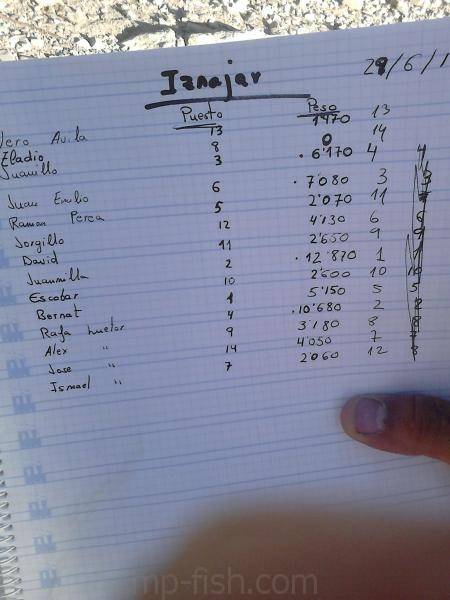 Iznajar 28/6/1
Puesto Peso
Vero Avila 13 1970 13
Eladio 8 0 14
Juanillo 3 . 6'170 4 4
Juan Emilio 6 . 7'080 3 3
Ramon Perea 5 2'070 11
Jorgillo 12 4'130 6 6
David 11 2'650 9 9
Juanmilla 2 . 12'870 1 1
Escobar 10 2'600 10 10
Bernat 1 5'150 5 5
Rafa huetor 4 . 10'680 2 2
Alex " 9 3'180 8 8
Jose " 14 4'050 7
Ismael " 7 2'060 12
mp-fish.com